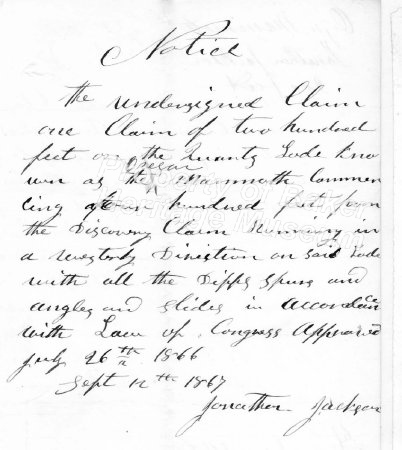 Notice
the undersigned Claim
one Claim of two hundred
feet on the Quartz Lode Kno
wn as the Oregon Mammoth Commen
cing hundred feet from
the Discovery Claim Running in
a westerly Direction on said Lode
with all the Dipps spurs and
angles and slides in accordance
with Law of Congress Approved
July 26th 1866
Sept 12th 1867
Jonathan Jackson